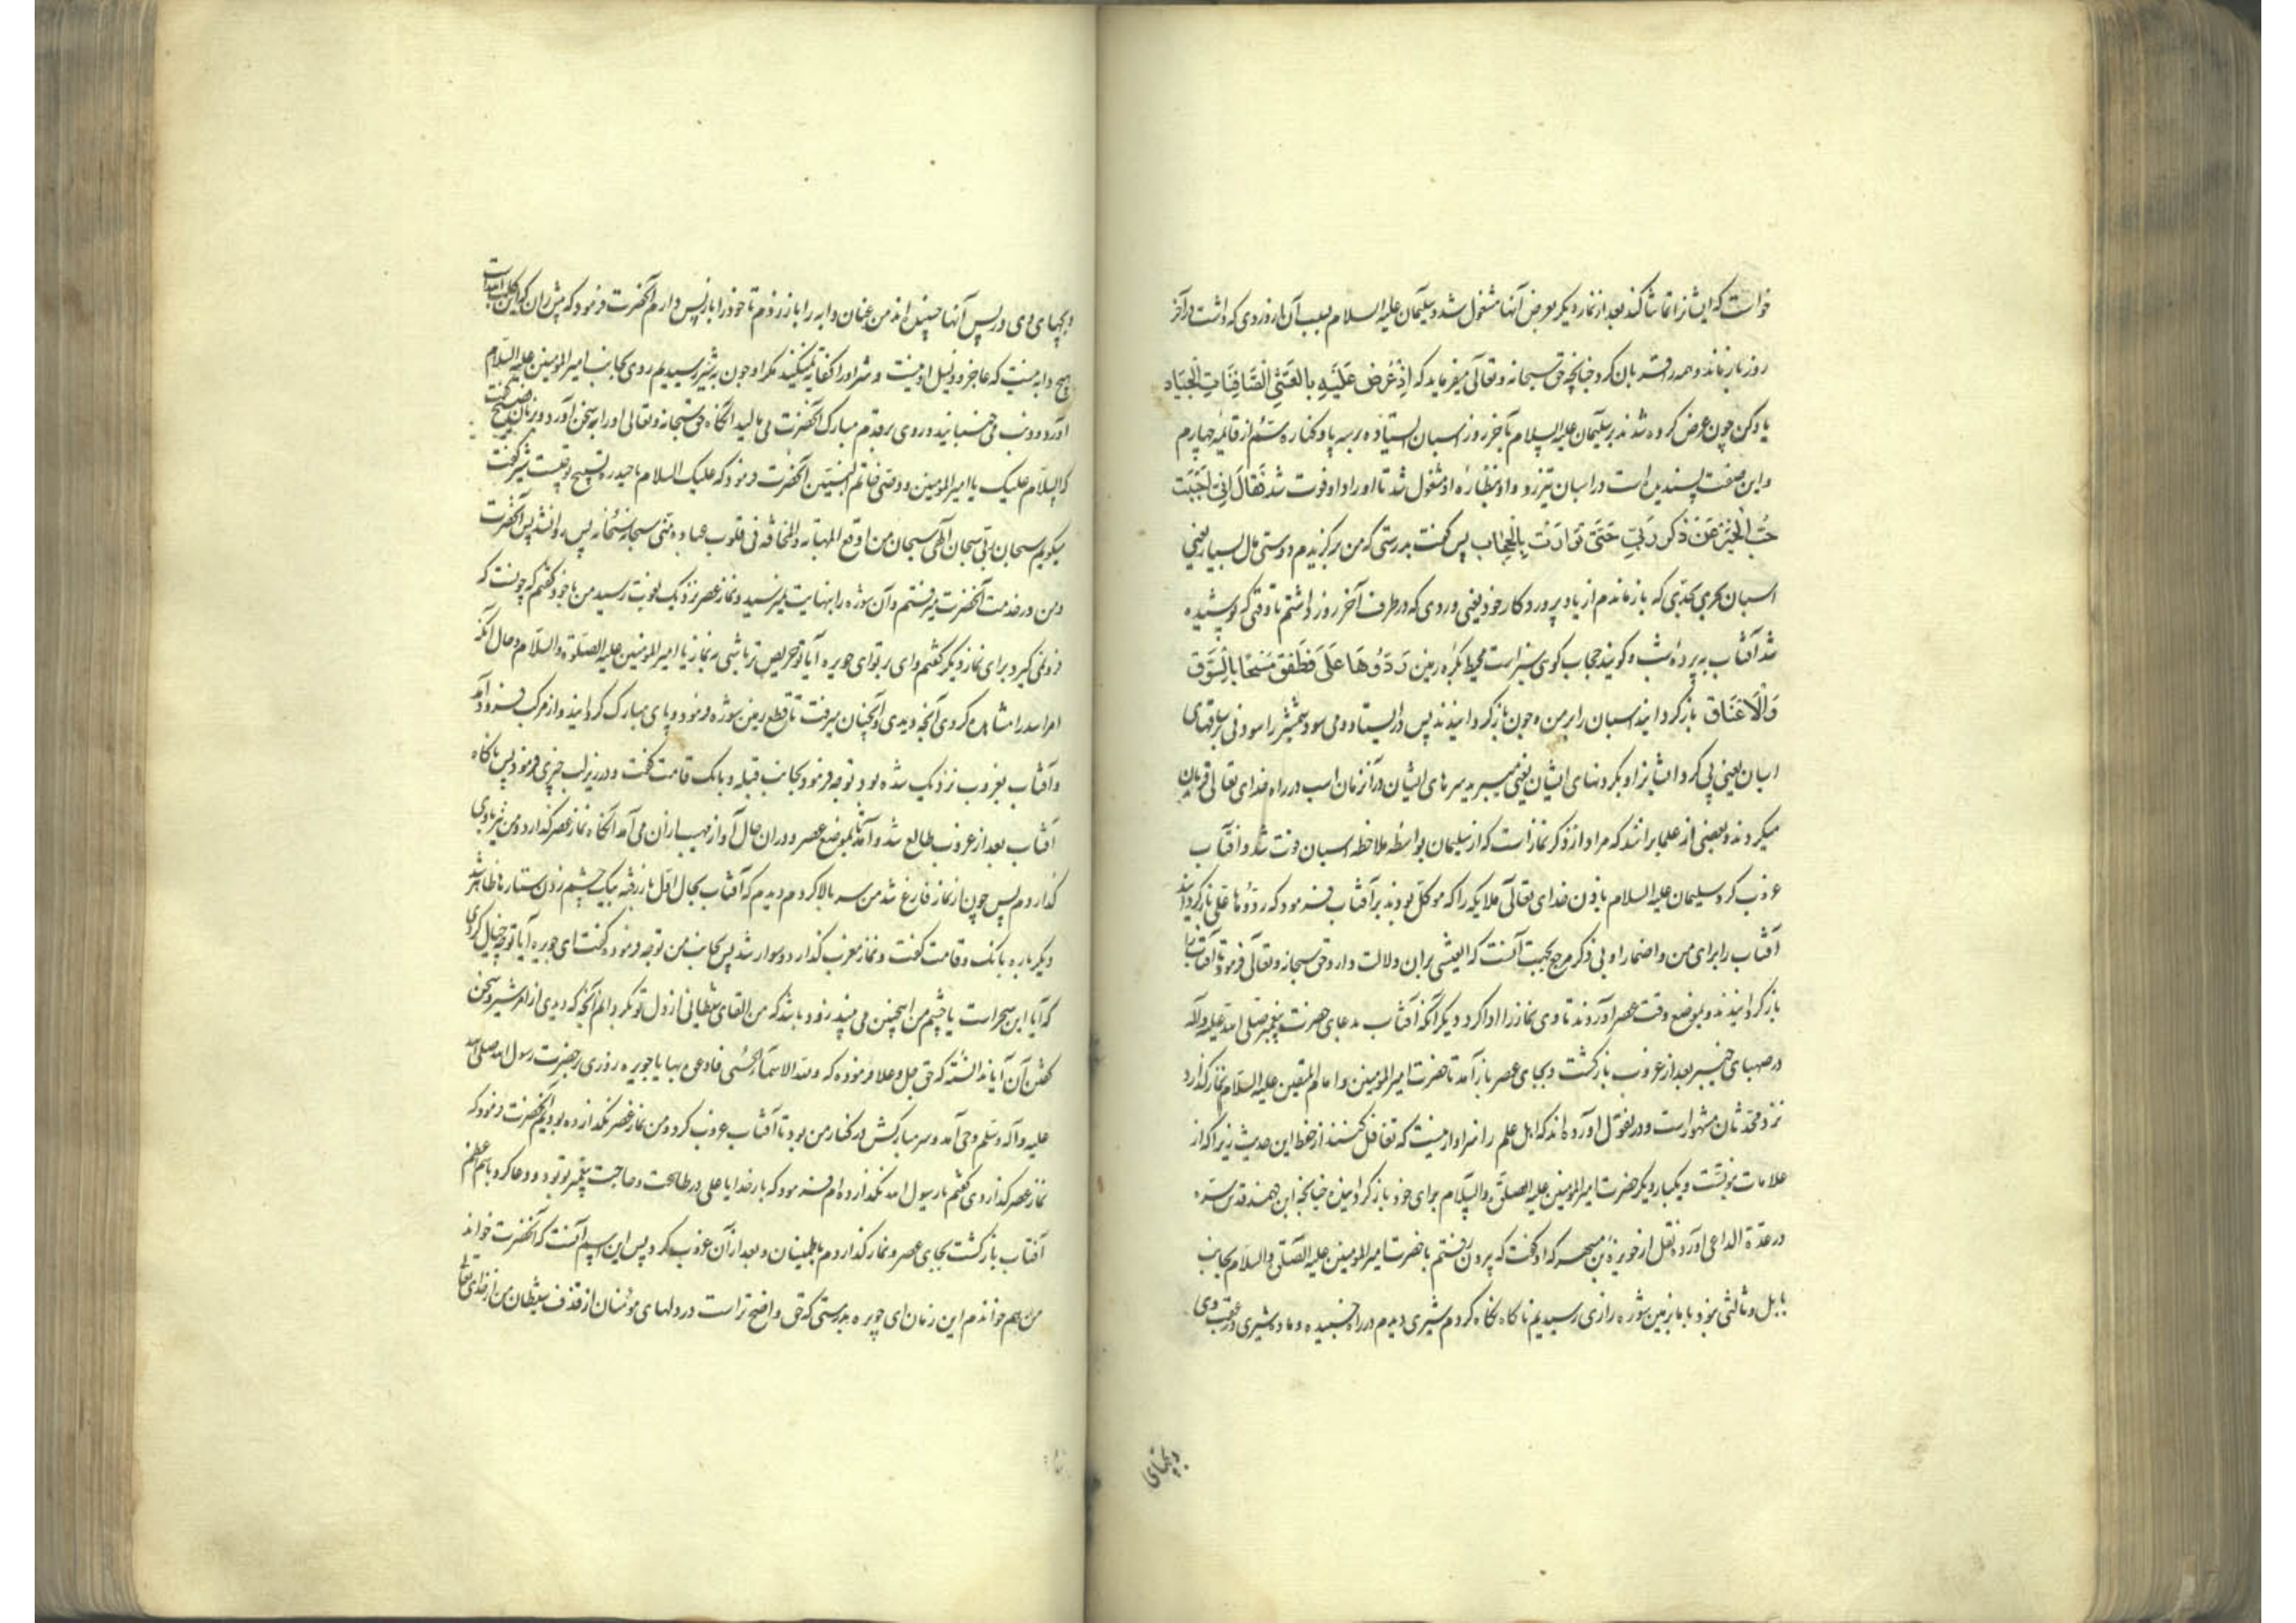 خواست که ایشانرا تماشا کند بعد از نماز دیگر بعرض آنها مشغول شد و سلیمان علیه السلام بسبب آن از وردی که داشت در آخر
روز باز ماند و همه را قربان کرد چنانچه حق سبحانه و تعالی میفرماید که اِذْ عُرِضَ عَلَیْهِ بِالْعَشِیِّ الصَّافِنَاتُ الْجِیَاد
یاد کن چون عرض کرده شدند بر سلیمان علیه السلام تا آخر روز اسبان ایستاده بر سه پا و کناره سم از قائمه چهارم
و این صفت پسندیده است در اسبان تیزرو و او بنظاره او مشغول شد تا اوراد او فوت شد فَقَالَ اِنِّی اَحْبَبْتُ
حُبَّ الْخَیْرِ عَنْ ذِکْرِ رَبِّی حَتَّی تَوَارَتْ بِالْحِجَابِ پس گفت بدرستی که من برگزیدم دوستی مال بسیار یعنی
اسبان بحدی که باز ماندم از یاد پروردکار خود یعنی وردی که در طرف آخر روز داشتم تا وقتی که پوشیده
شد آفتاب به پرده شب و کویند حجاب کوهی سبز است محیط بکره زمین رُدُّوهَا عَلَیَّ فَطَفِقَ مَسْحًا بِالسُّوقِ
وَالْاَعْنَاقِ باز کردانید اسبان را بر من و چون باز کردانیدند پس در ایستاد و می سود شمشیر را سودنی بساقهای
اسبان یعنی پی کرد ایشانرا و بکردنهای ایشان یعنی میبرید سرهای ایشان و در آنزمان اسب در راه خدای تعالی قربان
میکردند و بعضی از علما برانند که مراد از ذکر نماز است که از سلیمان بواسطه ملاحظه اسبان فوت شد و آفتاب
غروب کرد سلیمان علیه السلام باذن خدای تعالی ملایکه را که موکل بودند بر آفتاب فرمود که ردوها علی باز کردانید
آفتاب را برای من و اضمار او بی ذکر مرجع بجهت آنست که العشی بران دلالت دارد و حق سبحانه و تعالی فرمود تا آفتاب را
باز کردانیدند و بموضع وقت عصر آوردند تا وی نماز را ادا کرد و دیگر آنکه آفتاب بدعای حضرت پیغمبر صلی الله علیه و آله
در صهبای خیبر بعد از غروب بازکشت و بجای عصر باز آمد تا حضرت امیر المومنین و امام المتقین علیه السلام نماز کذارد
نزد محدثان مشهور است و در نقول آورده اند که اهل علم را سزاوار نیست که تغافل کنند از حفظ این حدیث زیرا که از
علامات نبوتست و یکبار دیگر حضرت امیر المومنین علیه الصلوة والسلام برای خود باز کردانیده چنانچه ابن فهد قدس سره
در عدة الداعی آورده نقل از جویریه بن مسهر که او کفت که بیرون رفتم با حضرت امیر المومنین علیه الصلوة والسلام بجانب
بابل و ثالثی نبود با ما بزمین شوره زاری رسیدیم ناکاه نکاه کردم شیری دیدم در راه خسبیده و ماده شیری در عقب وی
و بچهای
و بچهای وی در پس آنها خسبیده اند من عنان دابه را باز زدم تا خود را باز پس دارم آنحضرت فرمود که پیش ران که این کلب الله است
هیچ دابه نیست که عاجز و ذلیل او نیست و شر او را کفایه نمیکند مکر او چون بر شیر رسیدیم روی بجانب امیر المومنین علیه السلام
آورد و دنب می جنبانید و روی بر قدم مبارک آنحضرت می مالید آنگاه حق سبحانه و تعالی او را به سخن آورد و بزبان فصیح گفت
که السلام علیک یا امیر المومنین و وصی خاتم النبیین آنحضرت فرمود که علیک السلام یا حیدره تسبیح تو چیست شیر کفت
میکویم سبحان ربی سبحان الهی سبحان من اوقع المهابه والمخافه فی قلوب عباده منی سبحانه سبحانه پس روانشد پس آنحضرت
و من در خدمت آنحضرت میرفتم و آن شوره را نهایت نمیرسید و نماز عصر نزدیک بفوت رسید من با خود کفتم که چونست که
فرو نمی کیرد برای نماز و دیگر کفتم وای بر تو ای جویریه آیا تو حریص تر باشی به نماز یا امیر المومنین علیه الصلوة والسلام و حال آنکه
امر اسد را مشاهده کردی آنچه دیدی و همچنان میرفت تا قطع زمین شوره فرمود و پای مبارک کردانید و از مرکب فرود آمد
و آفتاب بغروب نزدیک شده بود توجه فرمود بجانب قبله و بانک و قامت کفت و در زیر لب چیزی فرمود پس ناکاه
آفتاب بعد از غروب طالع شد و آمد تا بموضع عصر و در آن حال آواز مهیب از آن می آمد آنکاه نماز عصر کذارد و من نیز با وی
کذاردم پس چون از نماز فارغ شد من سر بالا کردم دیدم که آفتاب بحال اول باز رفته بیک چشم زدن ستارها ظاهر شد
دیگر باره بانک و قامت کفت و نماز مغرب کذارد و سوار شد پس بجانب من توجه فرموده کفت ای جویریه آیا تو چه خیال کردی
که آیا این سحر است یا چشم من اینچنین می بیند زود باشد که من القای شیطانی از دل تو بکردانم آنچه که دیدی از امر شیر و سخن
کفتن آن آیا ندانسته که حق جل و علا فرموده که ولله الاسماء الحسنی فادعوه بها یا جویریه روزی بر حضرت رسول الله صلی الله
علیه و آله وسلم وحی آمد و سر مبارکش در کنار من بود تا آفتاب غروب کرد و من نماز عصر نکذارده بودم آنحضرت فرمود که
نماز عصر کذاردی کفتم یا رسول الله نکذارده ام فرمود که بار خدایا علی در طاعت و حاجت پیغمبر تو بود و دعا کرد باسم اعظم
آفتاب بازکشت بجای عصر و نماز کذاردم باطمینان و بعد از آن غروب کرد پس این اسم آنست که آنحضرت خواند
من هم خواندم این زمان ای جویریه بدرستی که حق واضح تر است در دلهای مؤمنان از قذف شیطان من از خدای تعالی